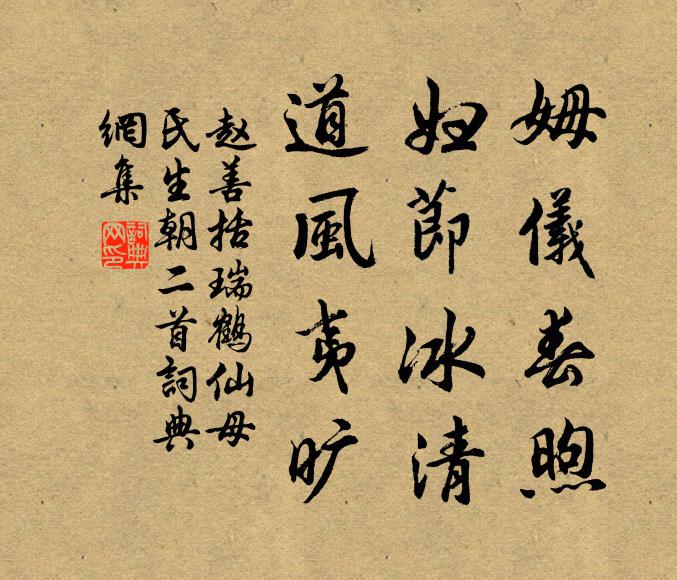 姆儀春煦
妇節冰清
道風夷旷
赵善括瑞鹤仙母
民生朝二首詞典
網集
詞典
网印